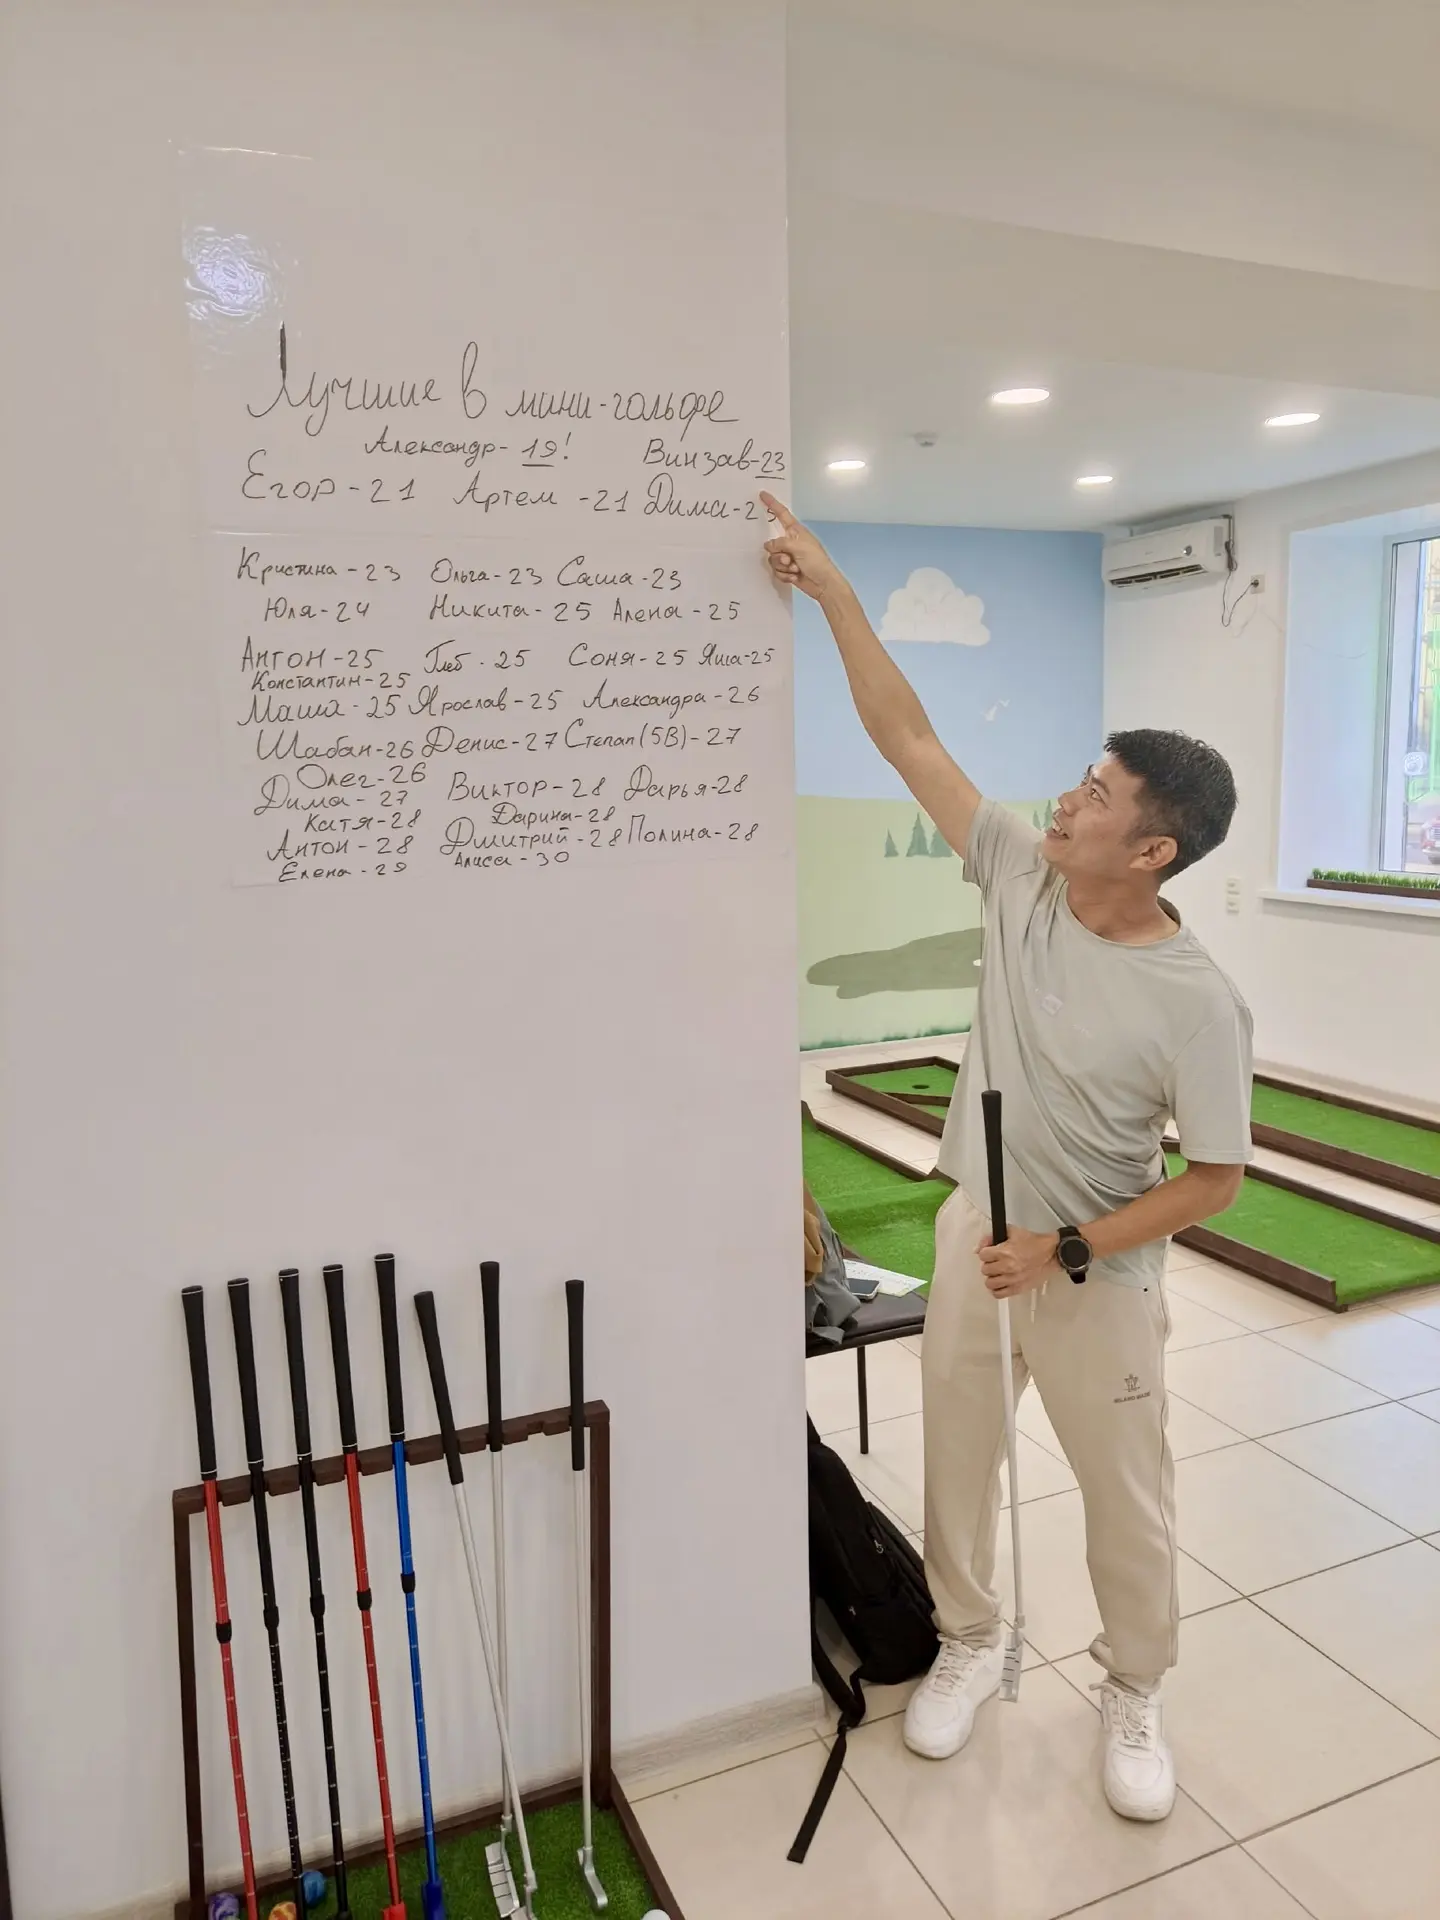 Лучшие в мини-гольфе
Александр- 19! Винзав-23
Егор-21 Артем -21 Дима-25
Кристина-23 Ольга-23 Саша-23
Юля-24 Никита-25 Алена-25
Антон-25 Глеб-25 Соня-25 Яша-25
Константин-25
Маша-25 Ярослав-25 Александра-26
Шабан-26 Денис-27 Степан(5В)-27
Олег-26
Дима-27 Виктор-28 Дарья-28
Катя-28 Дарина-28
Антон-28 Дмитрий-28 Полина-28
Елена-29 Алиса-30